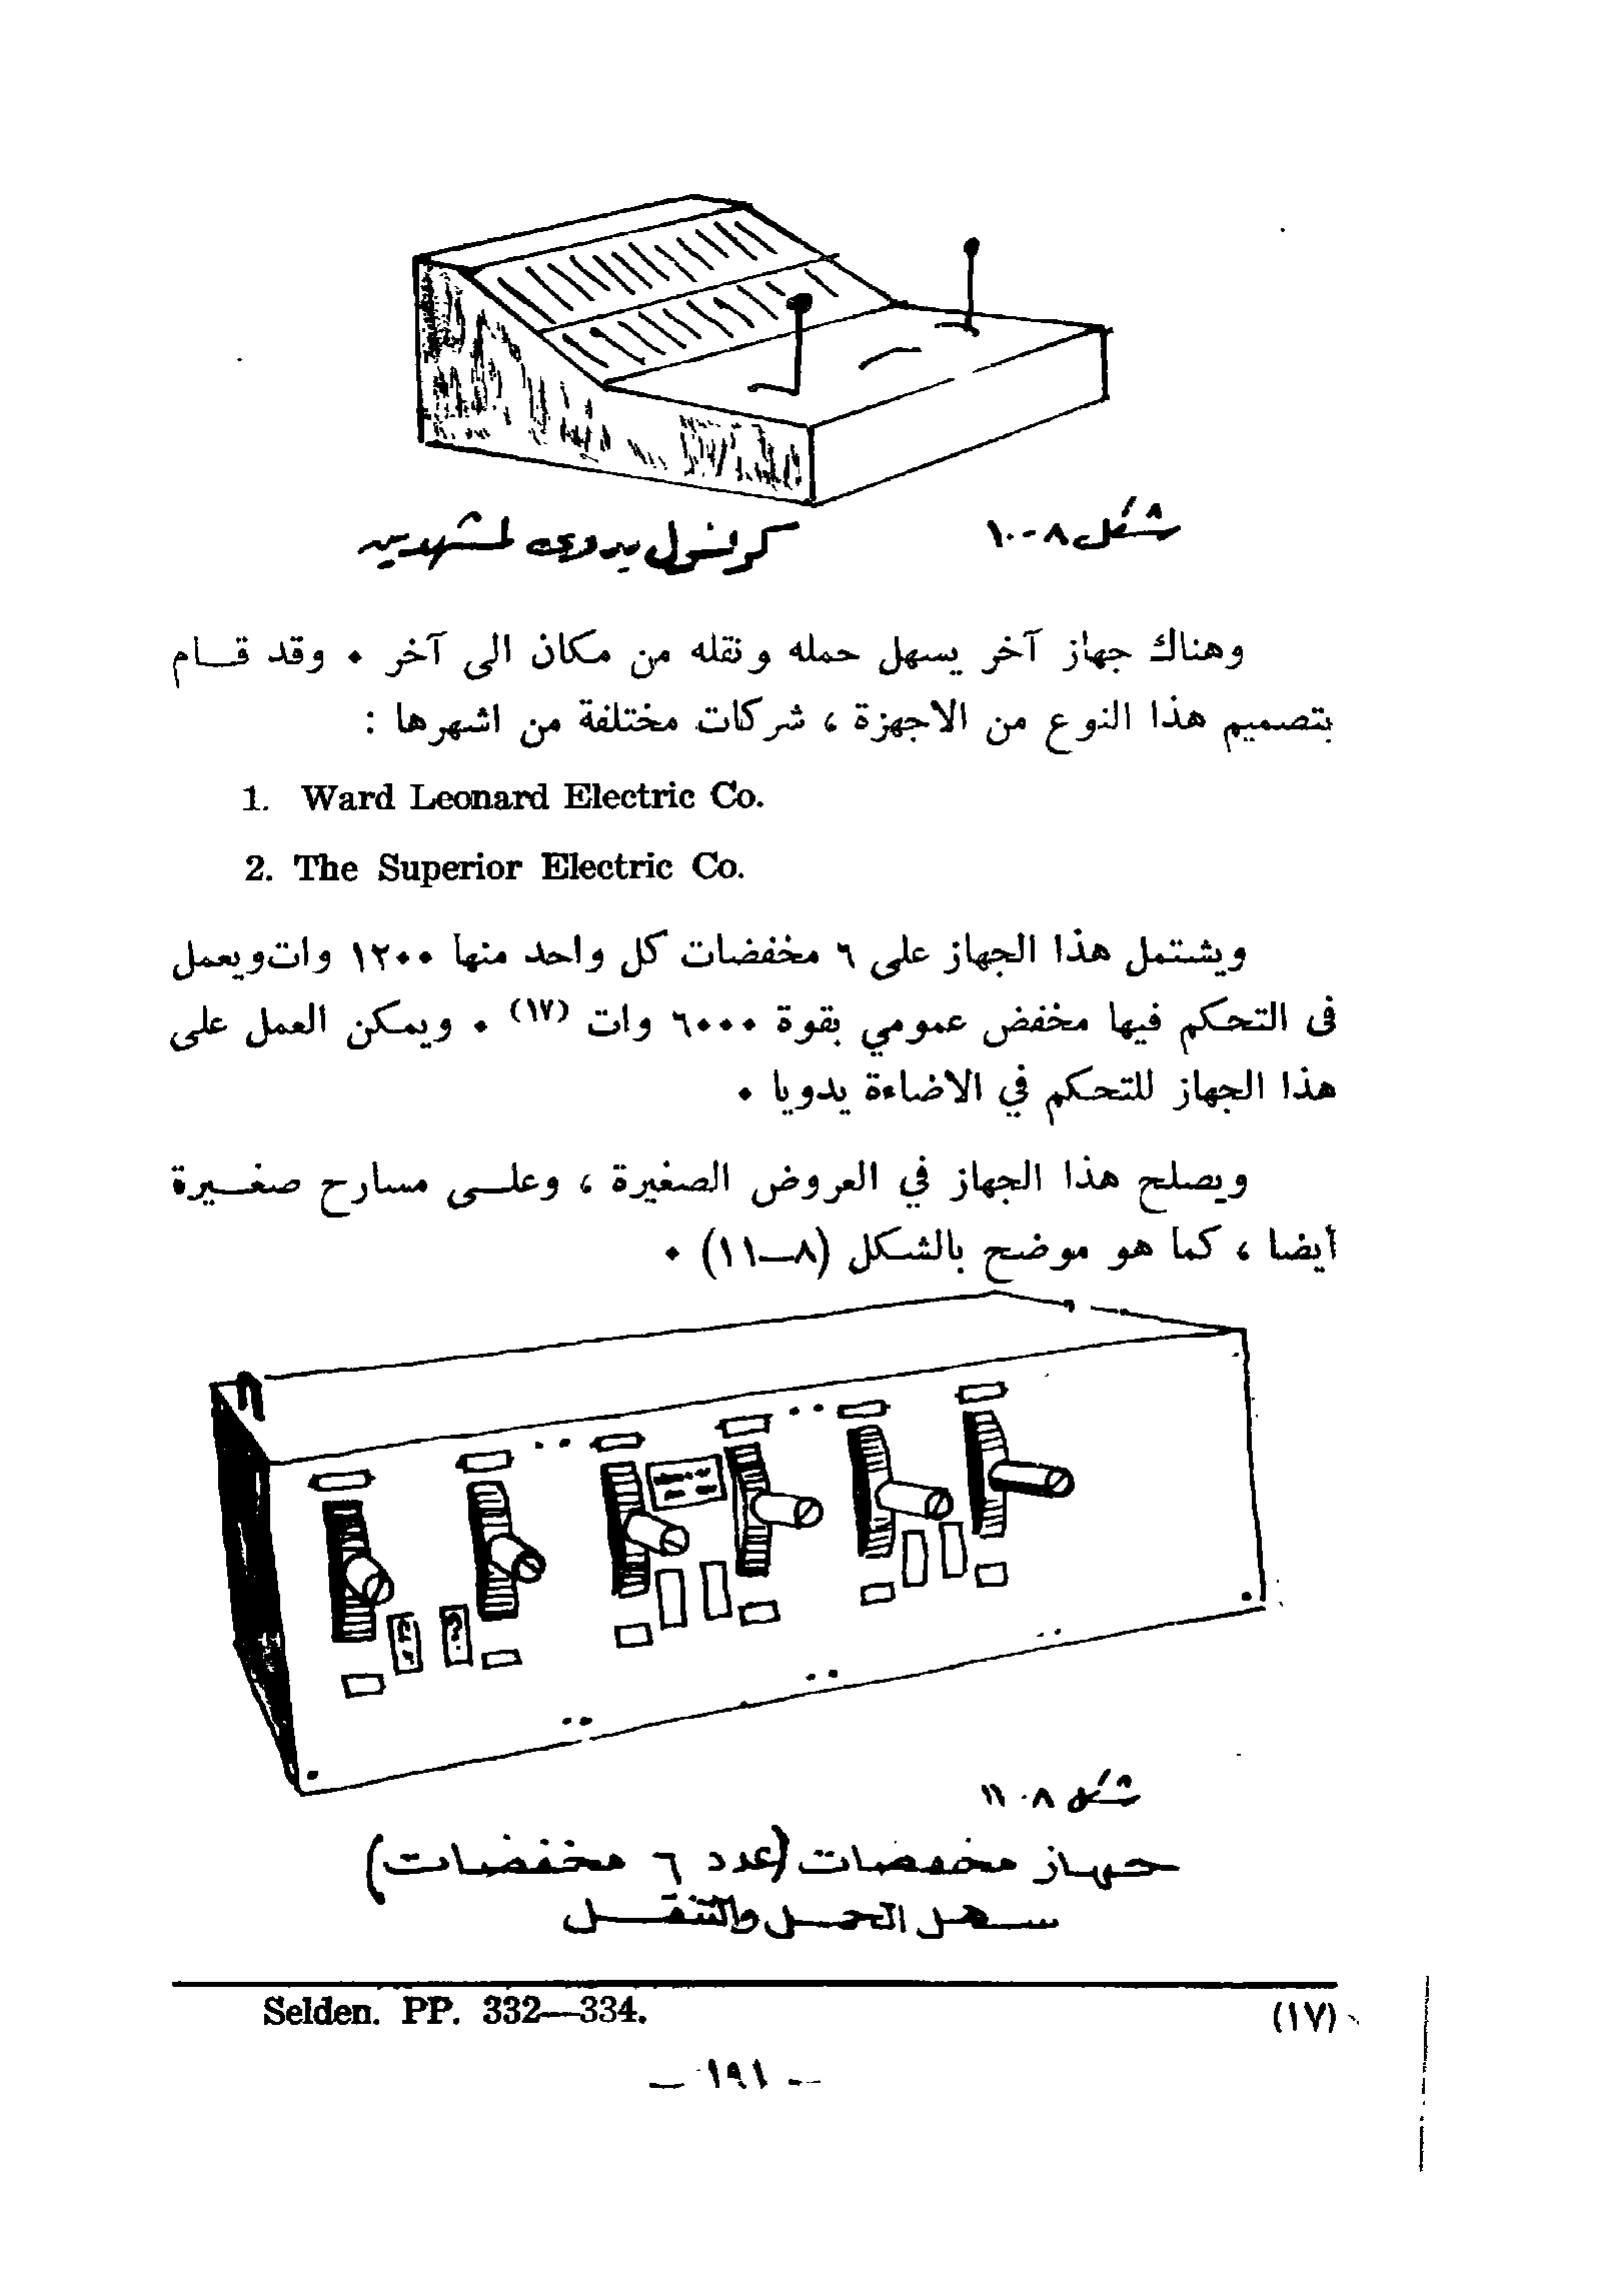 شكل ٨-١٠
كونسول يدوى لمشهدين
وهناك جهاز آخر يسهل حمله ونقله من مكان الى آخر ٠ وقد قــام
بتصميم هذا النوع من الاجهزة ، شركات مختلفة من اشهرها :
1. Ward Leonard Electric Co.
2. The Superior Electric Co.
ويشتمل هذا الجهاز على ٦ مخفضات كل واحد منها ١٢٠٠ وات ويعمل
فى التحكم فيها مخفض عمومي بقوة ٦٠٠٠ وات (١٧) ٠ ويمكن العمل على
هذا الجهاز للتحكم في الاضاءة يدويا ٠
ويصلح هذا الجهاز في العروض الصغيرة ، وعلــى مسارح صغــيرة
أيضا ، كما هو موضح بالشكل (٨—١١) ٠
شكل ٨-١١
جهاز مخفضات (عدد ٦ مخفضات)
سهل الحمل والتنقل
(١٧) Selden. PP. 332—334.
— ١٩١ —